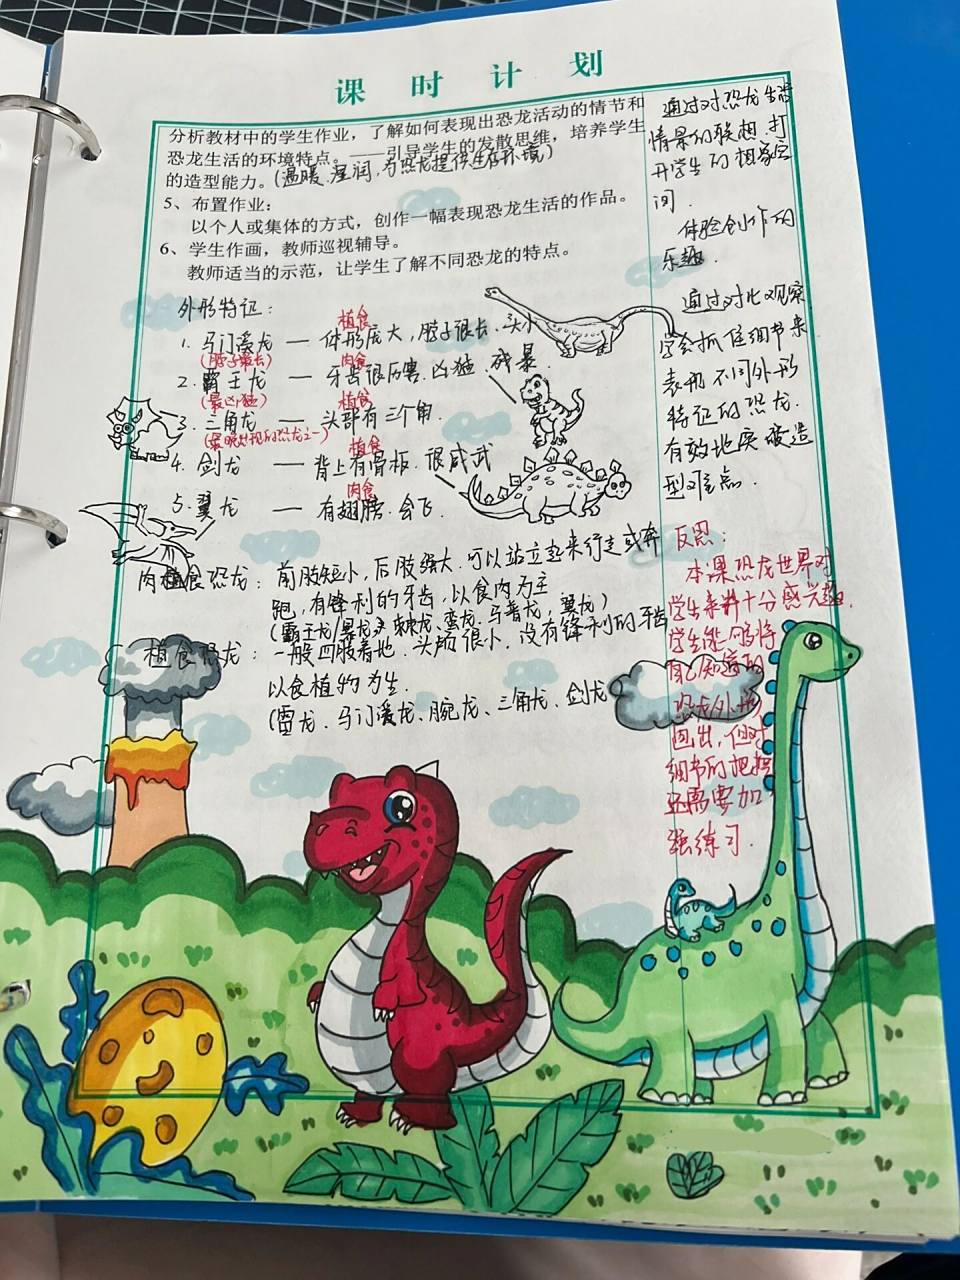 课时计划
分析教材中的学生作业，了解如何表现出恐龙活动的情节和
恐龙生活的环境特点。——引导学生的发散思维，培养学生
的造型能力。(温暖、湿润，为恐龙提供生存环境)
5、布置作业：
以个人或集体的方式，创作一幅表现恐龙生活的作品。
6、学生作画，教师巡视辅导。
教师适当的示范，让学生了解不同恐龙的特点。
外形特征：
植食
1. 马门溪龙 — 体形庞大，脖子很长、头小
(脖子最长)
肉食
2. 霸王龙 — 牙齿很厉害、凶猛、残暴
(最凶猛)
植食
3. 三角龙 — 头部有三个角
(最晚出现的恐龙之一)
植食
4. 剑龙 — 背上有骨板、很威武
肉食
5. 翼龙 — 有翅膀、会飞
肉食恐龙：前肢短小，后肢强大、可以站立起来行走或奔
跑，有锋利的牙齿，以食肉为主
(霸王龙/暴龙、棘龙、蛮龙、马普龙，翼龙)
植食恐龙：一般四肢着地、头颅很小、没有锋利的牙齿
以食植物为生.
(雷龙、马门溪龙、腕龙、三角龙、剑龙
通过对恐龙生活
情景的联想，打
开学生的想象空
间.
体验创作的
乐趣.
通过对比观察
学会抓住细节来
表现不同外形
特征的恐龙.
有效地突破造
型难点.
反思：
本课恐龙世界对
学生来料十分感兴趣.
学生能够将
自己知道的
恐龙外形
画出，但对
细节的把握
还需要加
强练习.